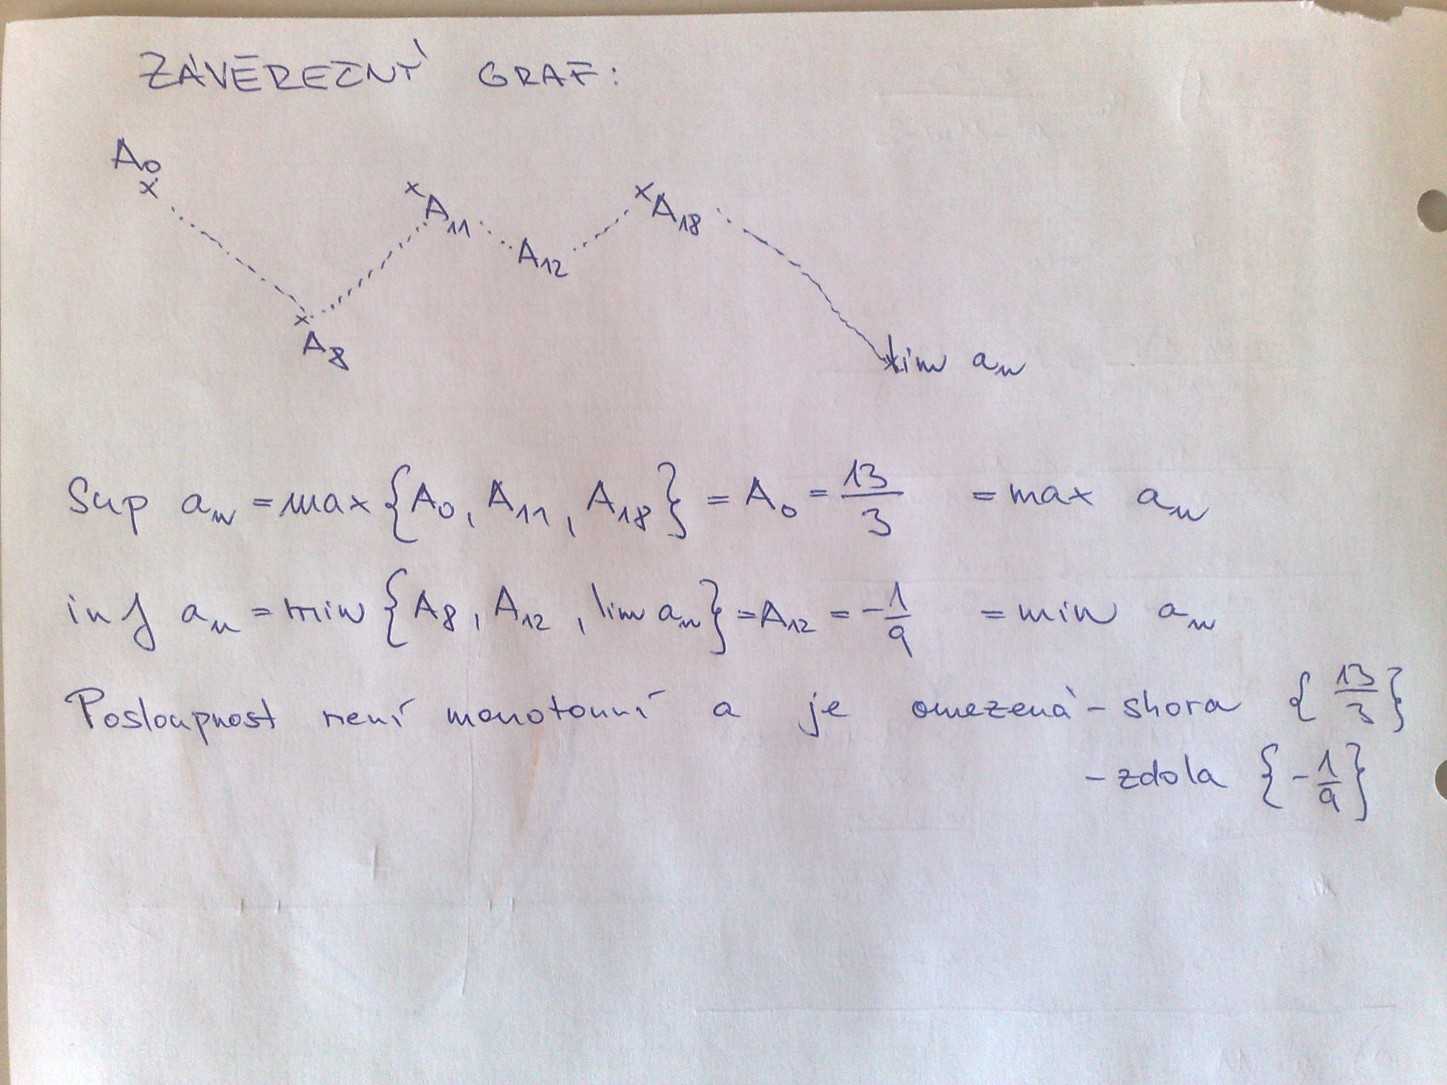 ZÁVĚREČNÝ GRAF:
A₀
A₁₁
A₁₈
A₁₂
A₈
lim aₙ
Sup aₙ = max {A₀, A₁₁, A₁₈} = A₀ = 13/3 = max aₙ
inf aₙ = min {A₈, A₁₂, lim aₙ} = A₁₂ = -1/9 = min aₙ
Posloupnost není monotonní a je omezená - shora {13/3}
- zdola {-1/9}